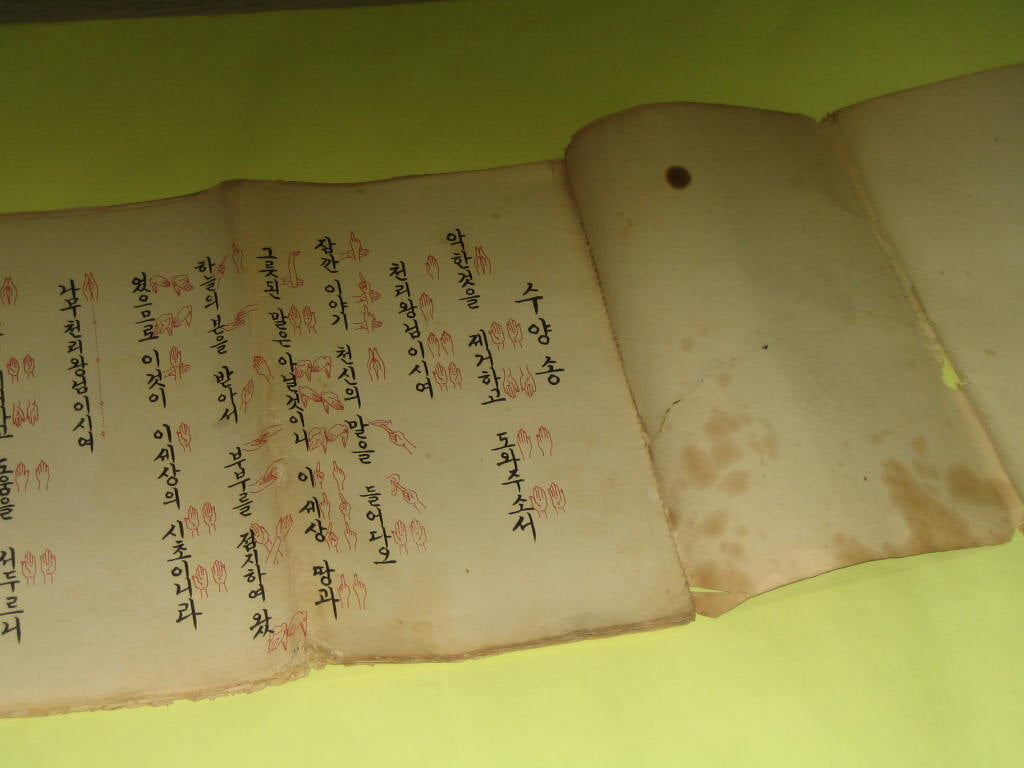 수양송
악한것을 제거하고 도와주소서
천리왕님이시여
잠깐 이야기 천신의 말을 들어다오
그릇된 말은 아닐것이니 이 세상 땅과
하늘의 본을 받아서 부부를 점지하여 왔
었으므로 이것이 이세상의 시초이니라
나무천리왕님이시여
도움을 서두르니